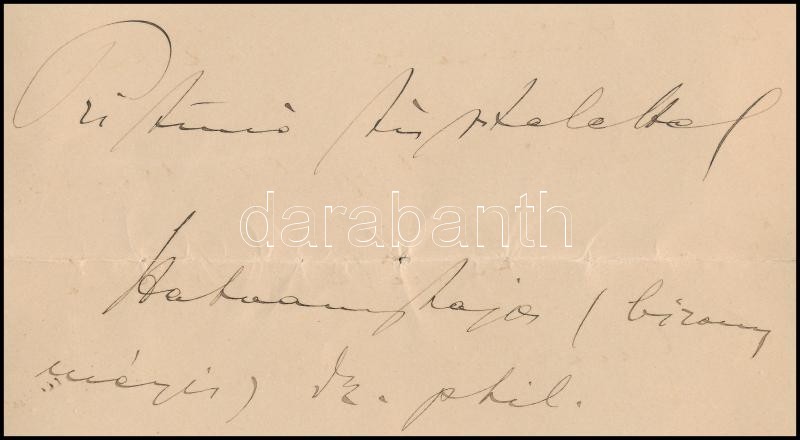 Kitünő tisztelettel
darabanth
Hatvany Lajos (bizony
mégis) dr. phil.